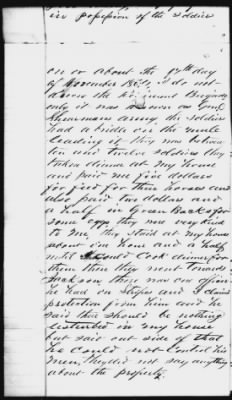 in possession of the soldiers
on or about the 17th day
of November 1864. I do not
know the regiment Brigade
only it was known as Genl
Shearmans army the soldier
had a bridle on the mule
leading it they was between
ten and twelve soldiers they
taken dinner at my house
and paid me five dollars
for feed for their horses and
also paid two dollars and
a half in Green Backs for
some eggs they was very kind
to me, they staid at my house
about an hour and a half
until I could Cook dinner for
them then they went towards
Jackson there was one officer
he had on stripes and I claimed
protection from him and he
said there should be nothing
disturbed in my house
but said out side of that
he could not Control his
men, they did not say anything
about the property.